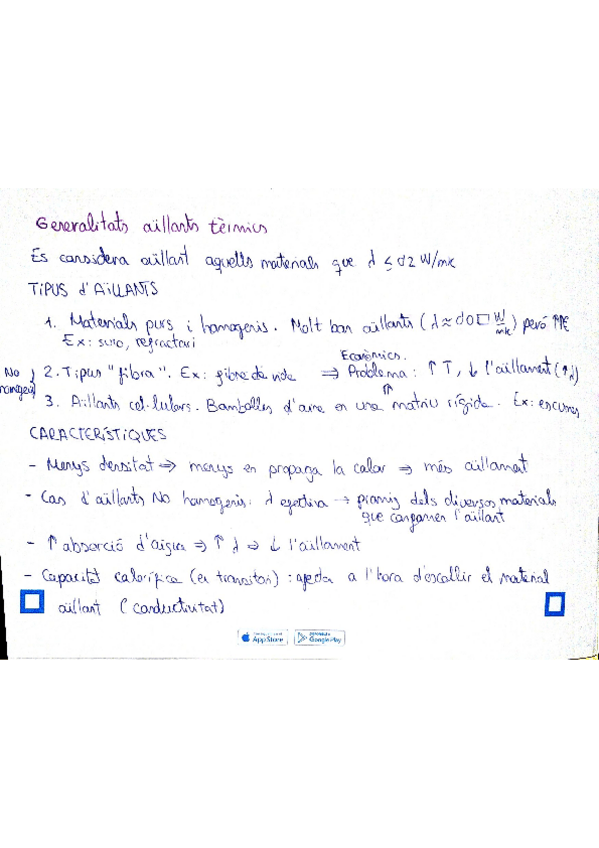 Generalitats aïllants tèrmics
Es considera aïllant aquells materials que λ ≤ 0'2 W/mK
TIPUS d'AILLANTS
1. Materials purs i homogenis. Molt bon aïllants (λ ≈ W/mK) però
Ex: suro, refractari
Econòmics.
No homogeni 2. Tipus "fibra". Ex: fibra de vidre ⇒ Problema: ↑ T, ↓ l'aïllament (↑λ)
3. Aïllants cel·lulars. Bombolles d'aire en una matriu rígida. Ex: escumes
CARACTERÍSTIQUES
- Menys densitat ⇒ menys en propaga la calor ⇒ més aïllament
- Cas d'aïllants NO homogenis: λ efectiva → promig dels diversos materials
que conformen l'aïllant
- ↑ absorció d'aigua ⇒ ↑ λ ⇒ ↓ l'aïllament
- Capacitat calorífica (en transitori): afecta a l'hora d'escollir el material
aïllant (conductivitat)
App Store Google Play